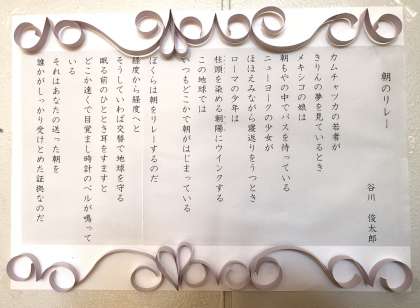 朝のリレー
谷川 俊太郎
カムチャツカの若者が
きりんの夢を見ているとき
メキシコの娘は
朝もやの中でバスを待っている
ニューヨークの少女が
ほほえみながら寝返りをうつとき
ローマの少年は
柱頭を染める朝陽にウインクする
この地球では
いつもどこかで朝がはじまっている
ぼくらは朝をリレーするのだ
経度から経度へと
そうしていわば交替で地球を守る
眠る前のひととき耳をすますと
どこか遠くで目覚まし時計のベルが鳴って
いる
それはあなたの送った朝を
誰かがしっかり受けとめた証拠なのだ